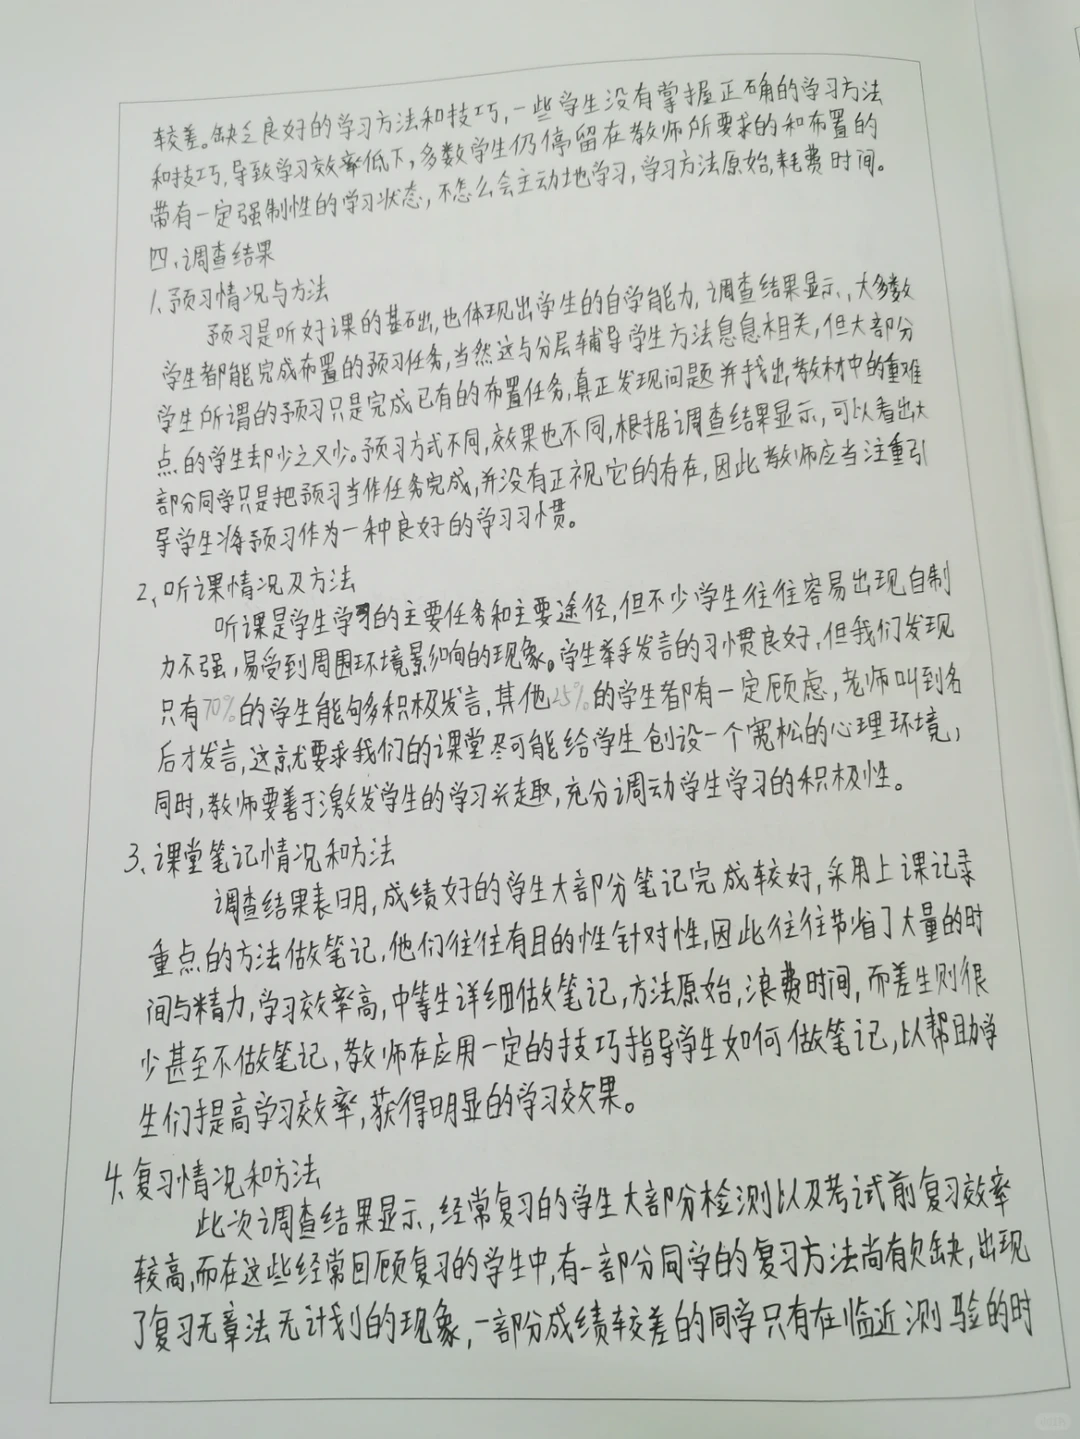 较差。缺乏良好的学习方法和技巧,一些学生没有掌握正确的学习方法
和技巧,导致学习效率低下,多数学生仍停留在教师所要求的和布置的
带有一定强制性的学习状态,不怎么会主动地学习,学习方法原始,耗费时间。
四、调查结果
1、预习情况与方法
预习是听好课的基础,也体现出学生的自学能力,调查结果显示,大多数
学生都能完成布置的预习任务,当然这与分层辅导学生方法息息相关,但大部分
学生所谓的预习只是完成已有的布置任务,真正发现问题并找出教材中的重难
点的学生却少之又少。预习方式不同,效果也不同,根据调查结果显示,可以看出大
部分同学只是把预习当作任务完成,并没有正视它的存在,因此教师应当注重引
导学生将预习作为一种良好的学习习惯。
2、听课情况及方法
听课是学生学习的主要任务和主要途径,但不少学生往往容易出现自制
力不强,易受到周围环境影响的现象。学生举手发言的习惯良好,但我们发现
只有70%的学生能够多积极发言,其他25%的学生都有一定顾虑,老师叫到名
后才发言,这就要求我们的课堂尽可能给学生创设一个宽松的心理环境,
同时,教师要善于激发学生的学习兴趣,充分调动学生学习的积极性。
3、课堂笔记情况和方法
调查结果表明,成绩好的学生大部分笔记完成较好,采用上课记录
重点的方法做笔记,他们往往有目的性针对性,因此往往节省了大量的时
间与精力,学习效率高,中等生详细做笔记,方法原始,浪费时间,而差生则很
少甚至不做笔记,教师在应用一定的技巧指导学生如何做笔记,以帮助学
生们提高学习效率,获得明显的学习效果。
4、复习情况和方法
此次调查结果显示,经常复习的学生大部分检测以及考试前复习效率
较高,而在这些经常回顾复习的学生中,有一部分同学的复习方法尚有欠缺,出现
了复习无章法无计划的现象,一部分成绩较差的同学只有在临近测验的时